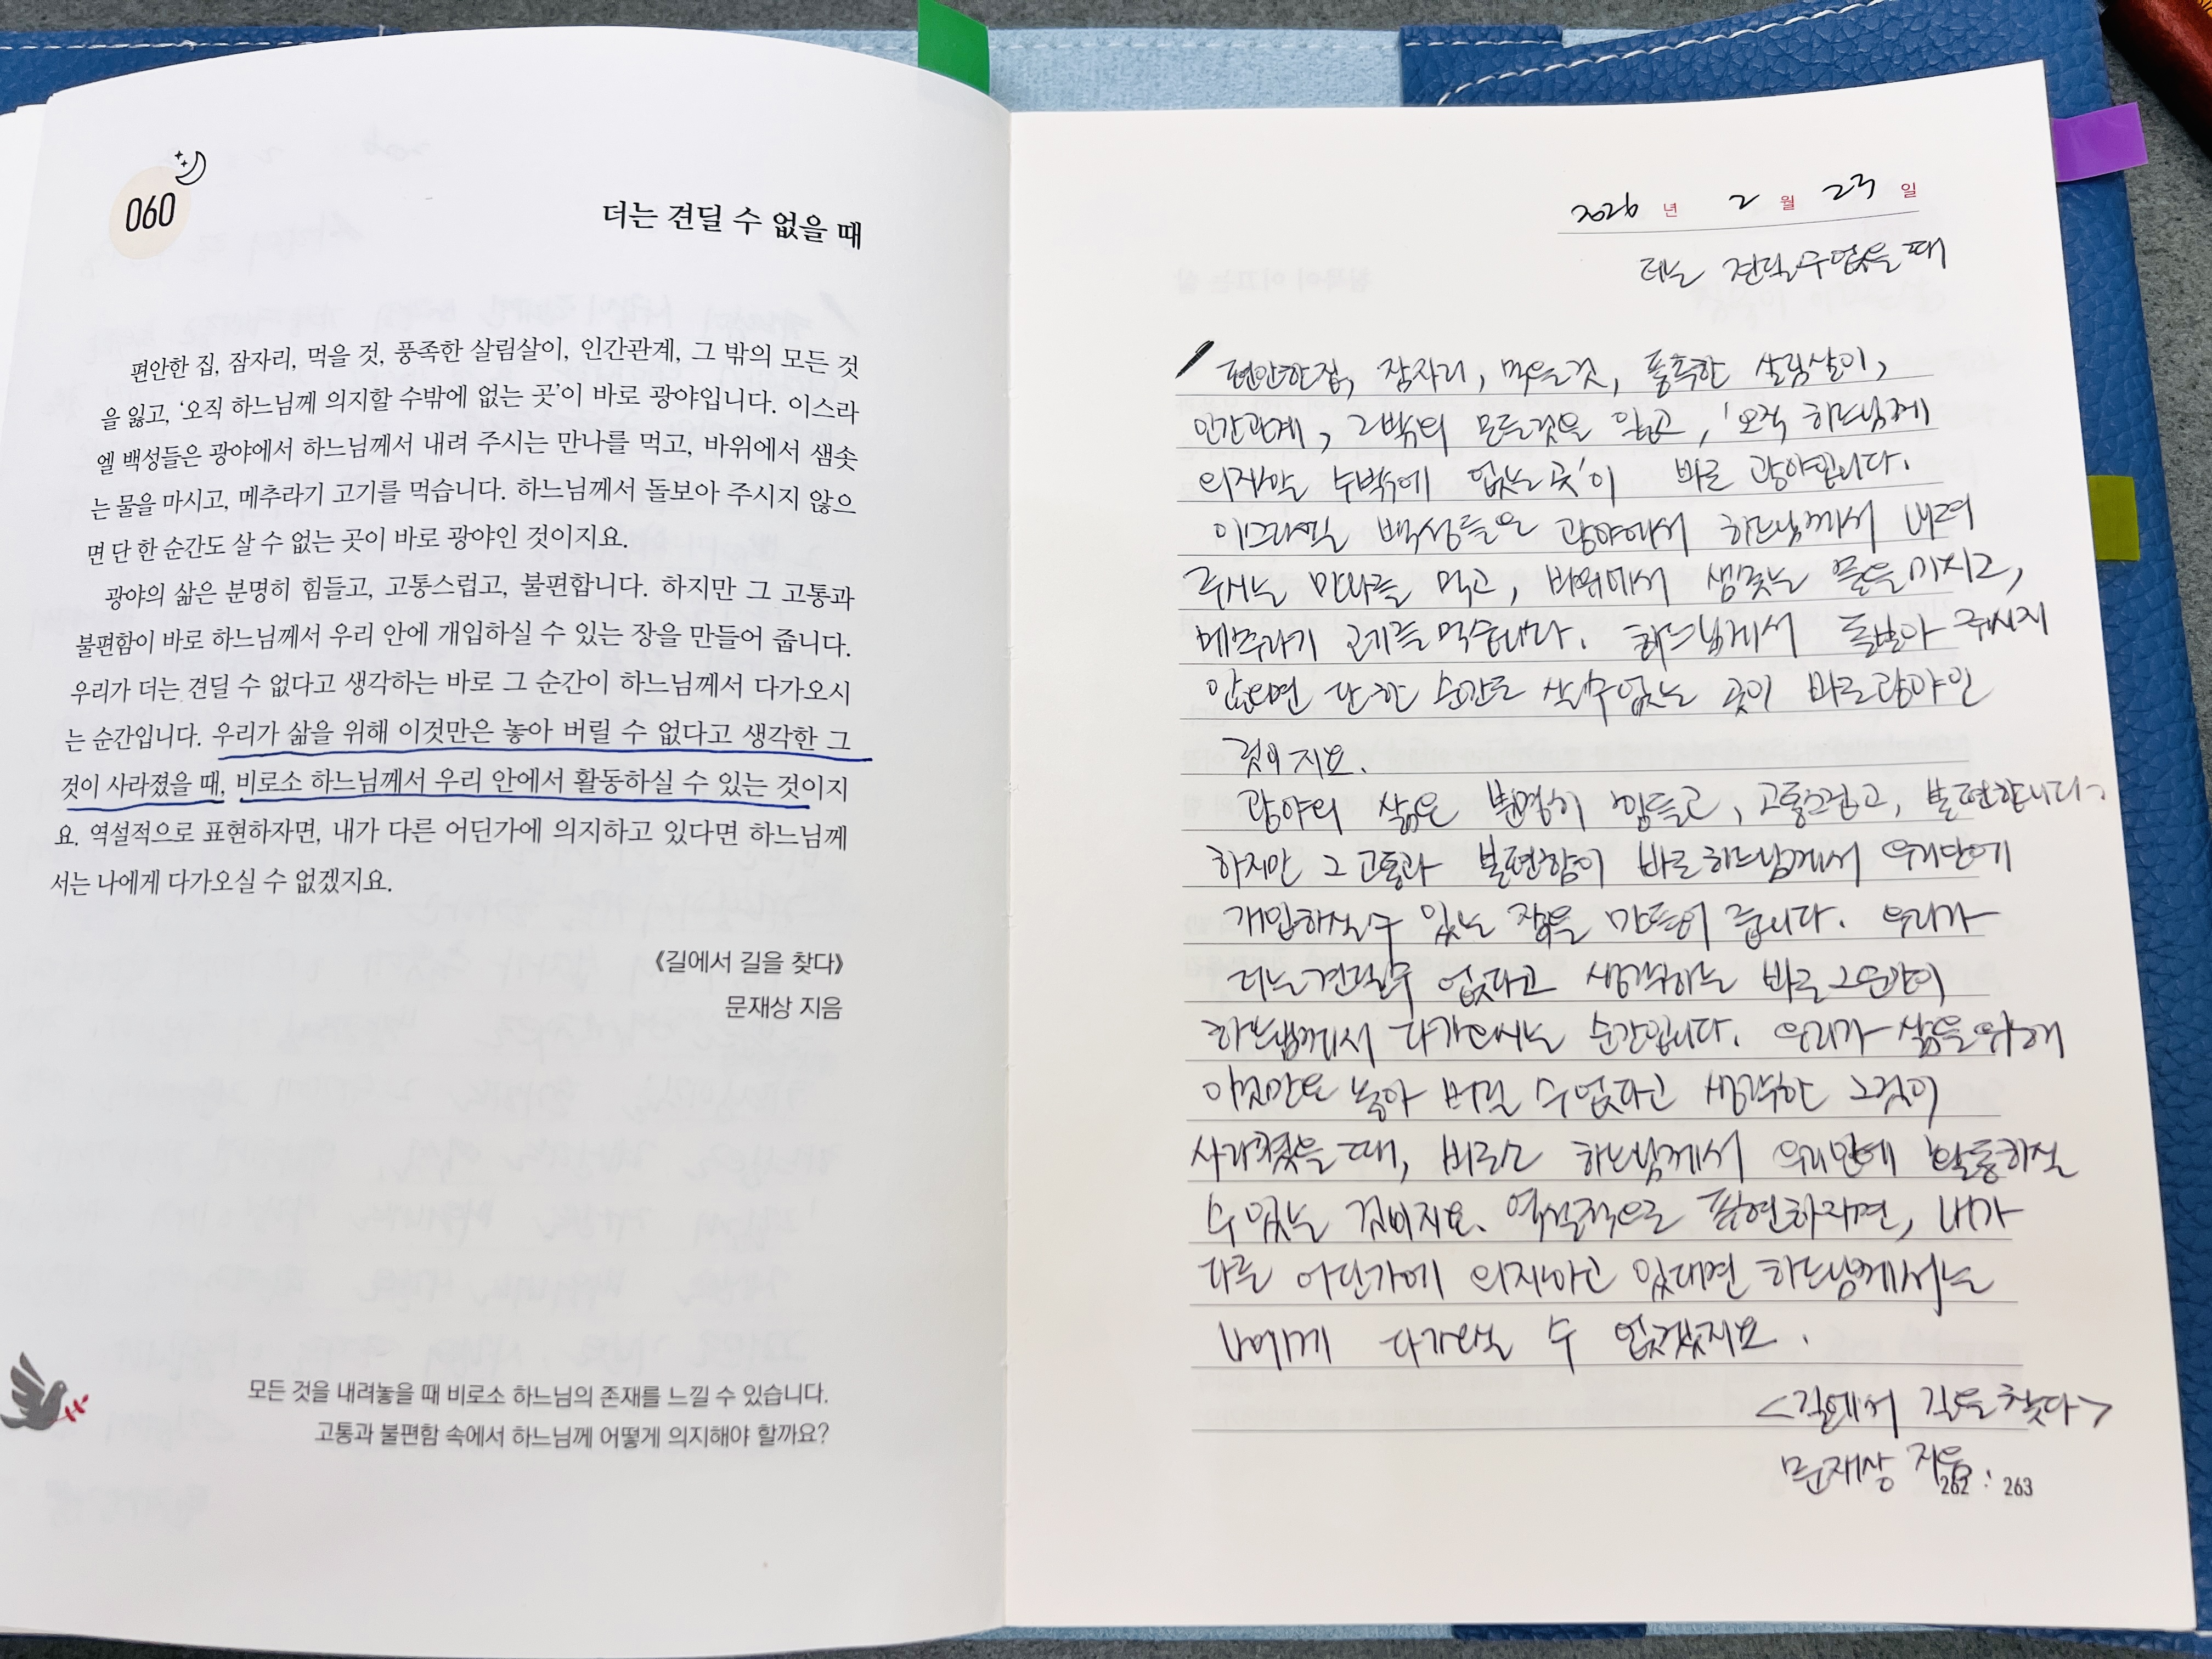 060
더는 견딜 수 없을 때
편안한 집, 잠자리, 먹을 것, 풍족한 살림살이, 인간관계, 그 밖의 모든 것
을 잃고, ‘오직 하느님께 의지할 수밖에 없는 곳’이 바로 광야입니다. 이스라
엘 백성들은 광야에서 하느님께서 내려 주시는 만나를 먹고, 바위에서 샘솟
는 물을 마시고, 메추라기 고기를 먹습니다. 하느님께서 돌보아 주시지 않으
면 단 한 순간도 살 수 없는 곳이 바로 광야인 것이지요.
광야의 삶은 분명히 힘들고, 고통스럽고, 불편합니다. 하지만 그 고통과
불편함이 바로 하느님께서 우리 안에 개입하실 수 있는 장을 만들어 줍니다.
우리가 더는 견딜 수 없다고 생각하는 바로 그 순간이 하느님께서 다가오시
는 순간입니다. 우리가 삶을 위해 이것만은 놓아 버릴 수 없다고 생각한 그
것이 사라졌을 때, 비로소 하느님께서 우리 안에서 활동하실 수 있는 것이지
요. 역설적으로 표현하자면, 내가 다른 어딘가에 의지하고 있다면 하느님께
서는 나에게 다가오실 수 없겠지요.
《길에서 길을 찾다》
문재상 지음
모든 것을 내려놓을 때 비로소 하느님의 존재를 느낄 수 있습니다.
고통과 불편함 속에서 하느님께 어떻게 의지해야 할까요?
2026 년 2 월 23 일
더는 견딜수없을 때
편안한집, 잠자리, 먹을것, 풍족한 살림살이,
인간관계, 그밖의 모든것을 잃고, '오직 하느님께
의지할 수밖에 없는 곳'이 바로 광야입니다.
이스라엘 백성들은 광야에서 하느님께서 내려
주시는 만나를 먹고, 바위에서 샘솟는 물을 마시고,
메추라기 고기를 먹습니다. 하느님께서 돌보아 주시지
않으면 단 한 순간도 살수없는 곳이 바로광야인
것이지요.
광야의 삶은 분명히 힘들고, 고통스럽고, 불편합니다.
하지만 그 고통과 불편함이 바로하느님께서 우리안에
개입하실수 있는 장을 만들어 줍니다. 우리가
더는견딜수 없다고 생각하는 바로그순간이
하느님께서 다가오시는 순간입니다. 우리가 삶을위해
이것만은 놓아 버릴 수없다고 생각한 그것이
사라졌을 때, 비로소 하느님께서 우리안에 활동하실
수있는 것이지요. 역설적으로 표현하자면, 내가
다른 어딘가에 의지하고 있다면 하느님께서는
나에게 다가오실 수 없겠지요.
<길에서 길을 찾다>
문재상 지음
262 : 263